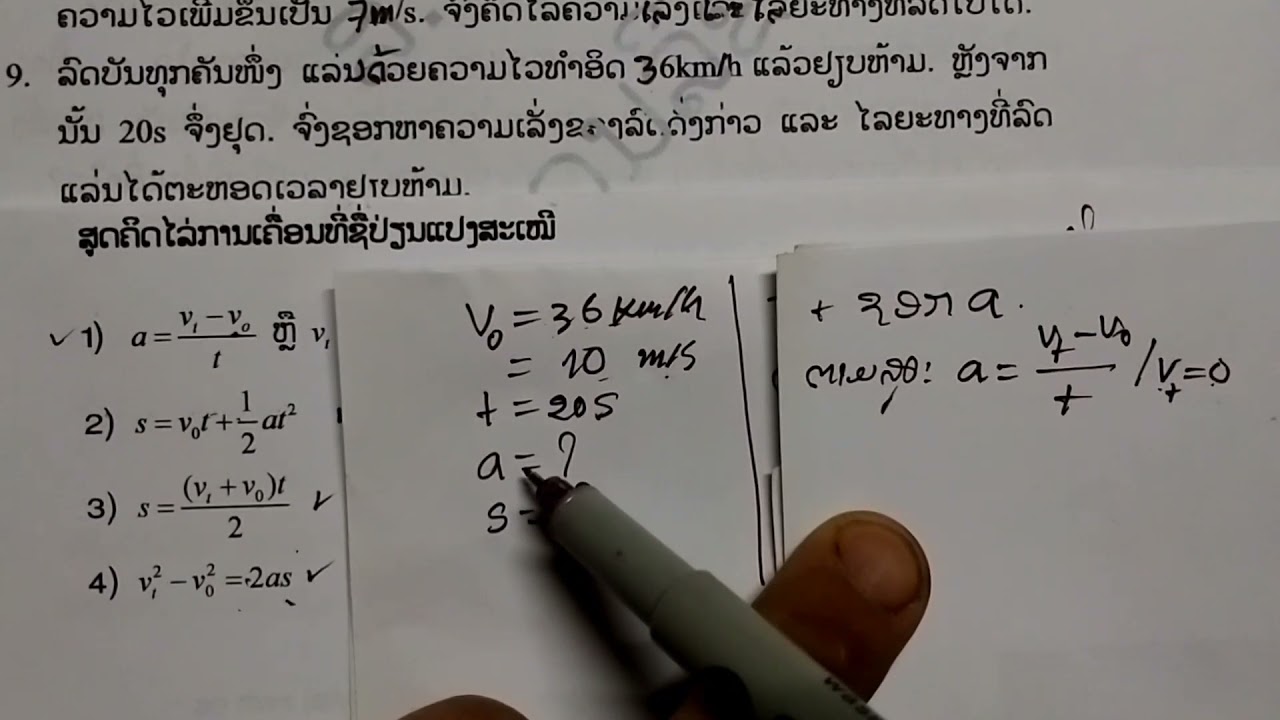 ຄວາມໄວເພີ່ມຂຶ້ນເປັນ 7m/s. ຈົ່ງຄິດໄລ່ຄວາມເລັ່ງ ແລະ ໄລຍະທາງທີ່ລົດໄປໄດ້.
9. ລົດບັນທຸກຄັນໜຶ່ງ ແລ່ນດ້ວຍຄວາມໄວທຳອິດ 36km/h ແລ້ວຢຽບຫ້າມ. ຫຼັງຈາກ
ນັ້ນ 20s ຈຶ່ງຢຸດ. ຈົ່ງຊອກຫາຄວາມເລັ່ງຂອງລົດດັ່ງກ່າວ ແລະ ໄລຍະທາງທີ່ລົດ
ແລ່ນໄດ້ຕະຫອດເວລາຢຽບຫ້າມ.
ສູດຄິດໄລ່ການເຄື່ອນທີ່ຊື່ປ່ຽນແປງສະເໝີ
✓ 1) a = (v_t − v_0)/t ຫຼື v_t
2) s = v_0t + 1/2 at²
3) s = (v_t + v_0)t/2 ✓
4) v_t² − v_0² = 2as ✓
V_0 = 36 km/h
= 10 m/s
t = 20s
a = ?
s =
+ ຊອກ a.
ຕາມສູດ: a = (v_t − v_0)/t / v_t = 0